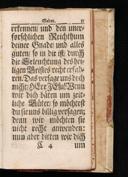 Salve. 55
erkennen und den uner-
forschlichen Reichthum
deiner Gnad und alles
guten so in dir ist durch
die Erleuchtung des hey-
ligen Geistes recht erfah-
ren. Das versage uns doch
nicht HErr JEsu! Denn
wir dich bäten um zeit-
liche Güter so möchtest
du sie uns billig versagen,
denn wir möchten sie
nicht recht anwenden:
nun aber bitten wir dich
C 4 um